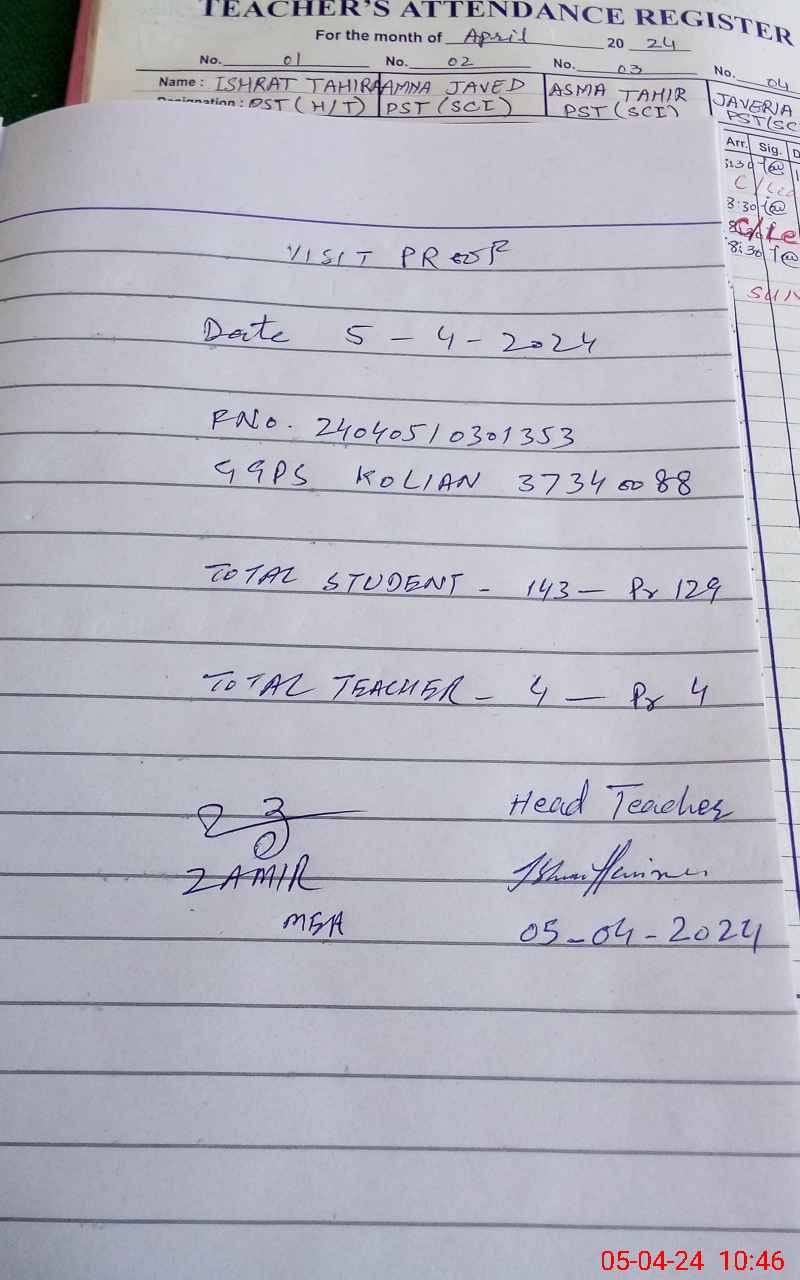 TEACHER'S ATTENDANCE REGISTER
For the month of April 20 24
No. 01 No. 02 No. 03 No. 04
Name : ISHRAT TAHIRA AMNA JAVED ASMA TAHIR JAVERIA
Designation : PST (H/T) PST (SCI) PST (SCI) PST (SC
Arr. Sig. D
8:30
C/Lea
8:30
C/Le
8:30
SUN
VISIT PROOF
Date 5-4-2024
FNo. 24040510301353
GGPS KOLIAN 37340088
TOTAL STUDENT - 143 - Pr 129
TOTAL TEACHER - 4 - Pr 4
Head Teacher
ZAMIR
MEA 05-04-2024
05-04-24 10:46